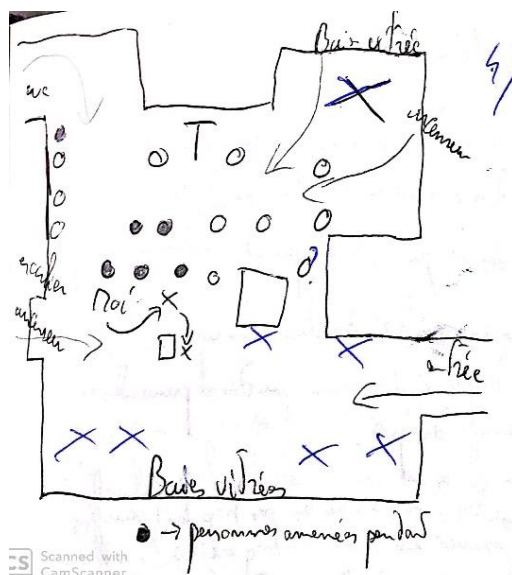 Baie vitrée
wc
T
ascenseur
escalier
Moi
ascenseur
?
entrée
Baies vitrées
→ personnes amenées pendant
CS Scanned with
CamScanner